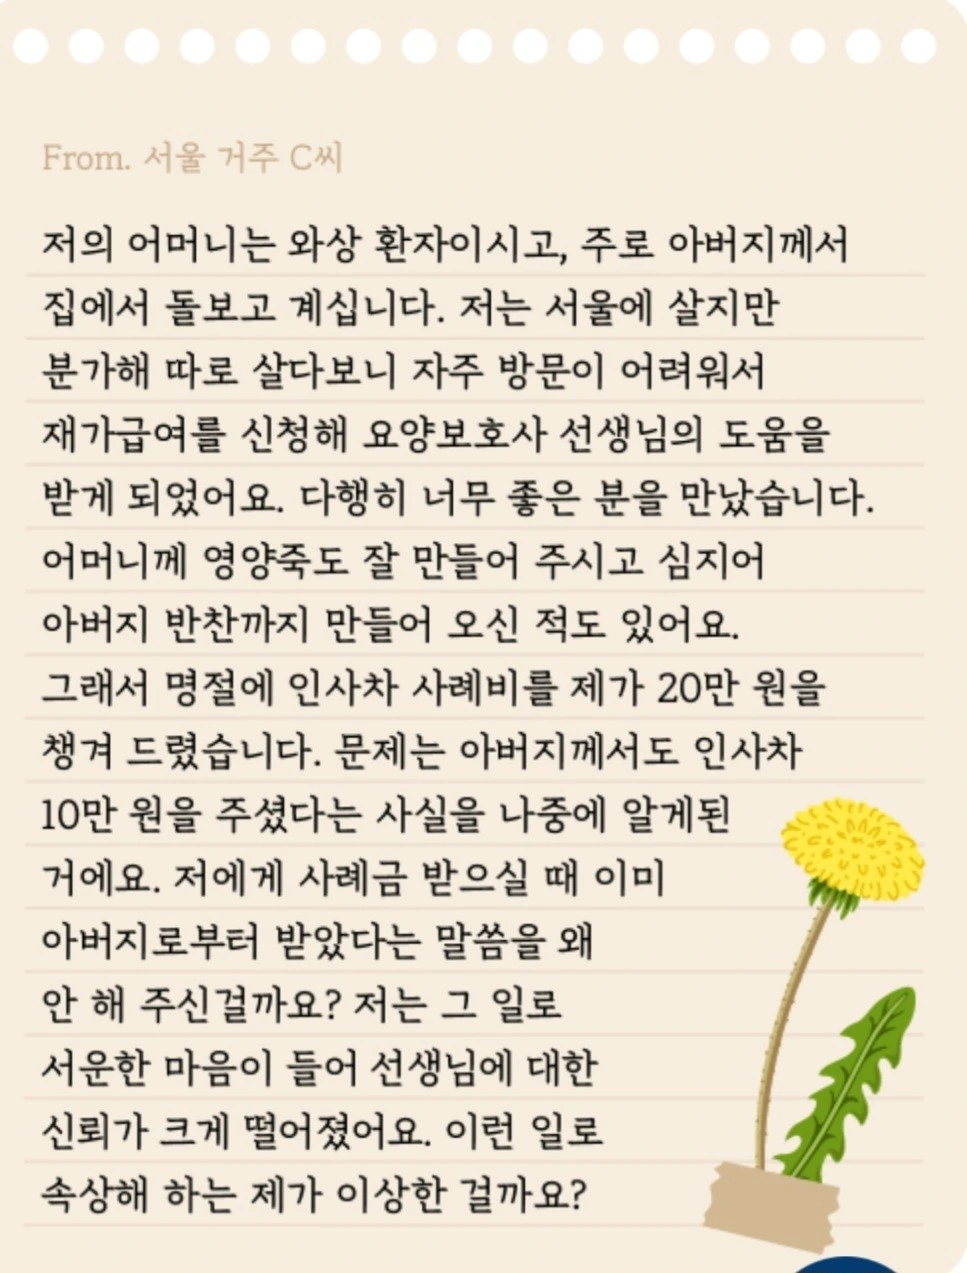 From. 서울 거주 C씨
저의 어머니는 와상 환자이시고, 주로 아버지께서
집에서 돌보고 계십니다. 저는 서울에 살지만
분가해 따로 살다보니 자주 방문이 어려워서
재가급여를 신청해 요양보호사 선생님의 도움을
받게 되었어요. 다행히 너무 좋은 분을 만났습니다.
어머니께 영양죽도 잘 만들어 주시고 심지어
아버지 반찬까지 만들어 오신 적도 있어요.
그래서 명절에 인사차 사례비를 제가 20만 원을
챙겨 드렸습니다. 문제는 아버지께서도 인사차
10만 원을 주셨다는 사실을 나중에 알게된
거에요. 저에게 사례금 받으실 때 이미
아버지로부터 받았다는 말씀을 왜
안 해 주신걸까요? 저는 그 일로
서운한 마음이 들어 선생님에 대한
신뢰가 크게 떨어졌어요. 이런 일로
속상해 하는 제가 이상한 걸까요?